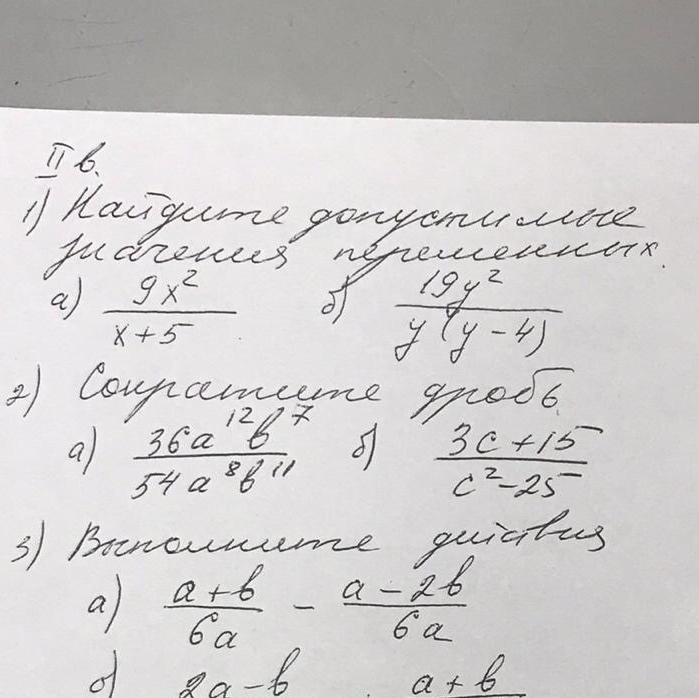 II в.
1) Найдите допустимые
значения переменных.
а) 9x²/(x+5) б) 19y²/(y(y-4))
2) Сократите дробь.
а) 36a¹²b⁷/(54a⁸b¹¹) б) (3c+15)/(c²-25)
3) Выполните действия
а) (a+b)/(6a) - (a-2b)/(6a)
б) 2a-b a+b